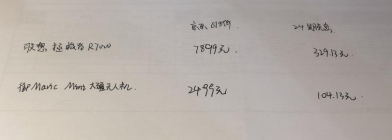 京东自营 24期免息
联想拯救者R7000 7899元 329.13元
御Mavic Mini大疆无人机. 2499元 104.13元